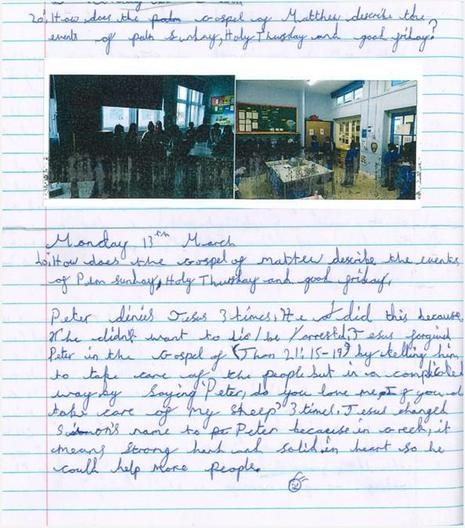 20, How does the palm Gospel of Matthew describe the
events of palm sunday, Holy Thursday and good friday?
Monday 13th March
to, How does the Gospel of matthew describe the events
of Palm Sunday, Holy Thursday and good friday,
Peter denies Jesus 3 times, He did this because
he didn't want to die / be / arrested, Jesus forgived
Peter in the Gospel of (Jhon 21:15-19) by telling him
to take care of the people but in a complicated
way by saying "Peter, do you love me, If you do
take care of my sheep" 3 times. Jesus changed
Simon's name to Peter because in a rock, it
means strong hard and solid in heart so he
could help more people.